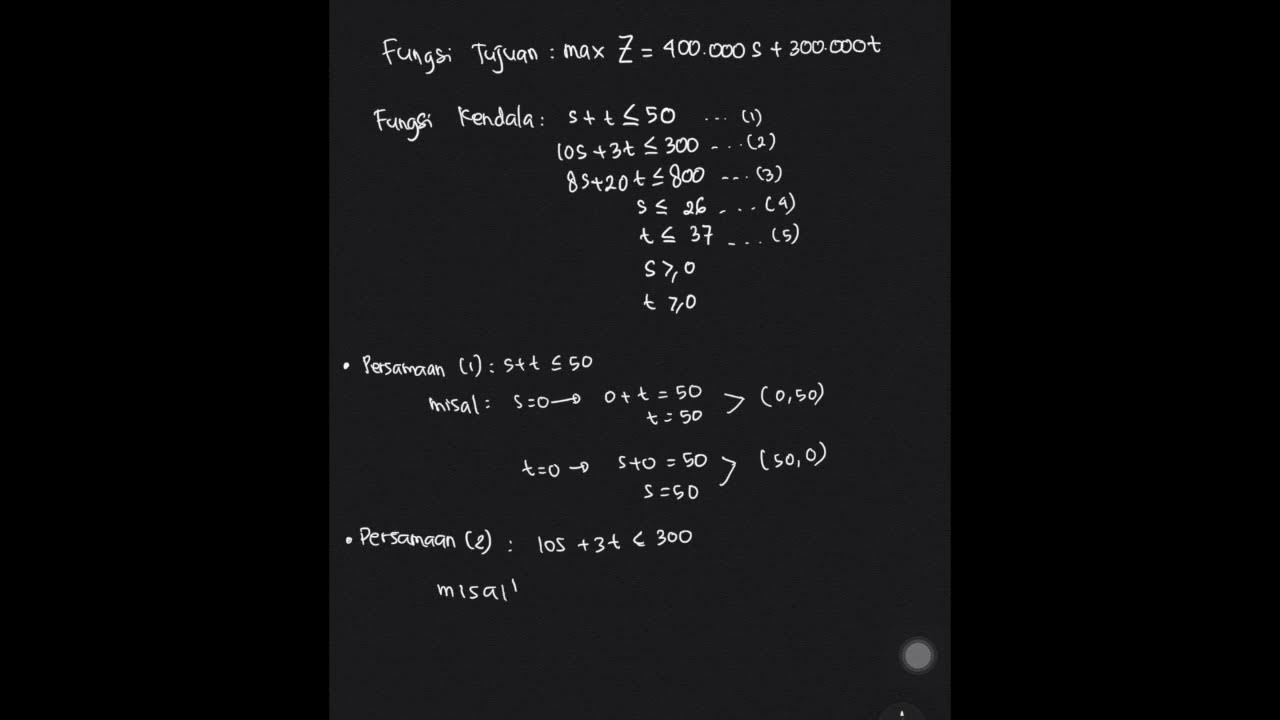 Fungsi Tujuan : max Z = 400.000 s + 300.000t
Fungsi Kendala : s + t ≤ 50 ... (1)
10s + 3t ≤ 300 ... (2)
8s+20t ≤ 800 ... (3)
s ≤ 26 ... (4)
t ≤ 37 ... (5)
s ≥ 0
t ≥ 0
• Persamaan (1) : s+t ≤ 50
misal : s=0 → 0 + t = 50 > (0,50)
t = 50
t=0 → s+0 = 50 > (50,0)
s = 50
• Persamaan (2) : 10s + 3t ≤ 300
misal